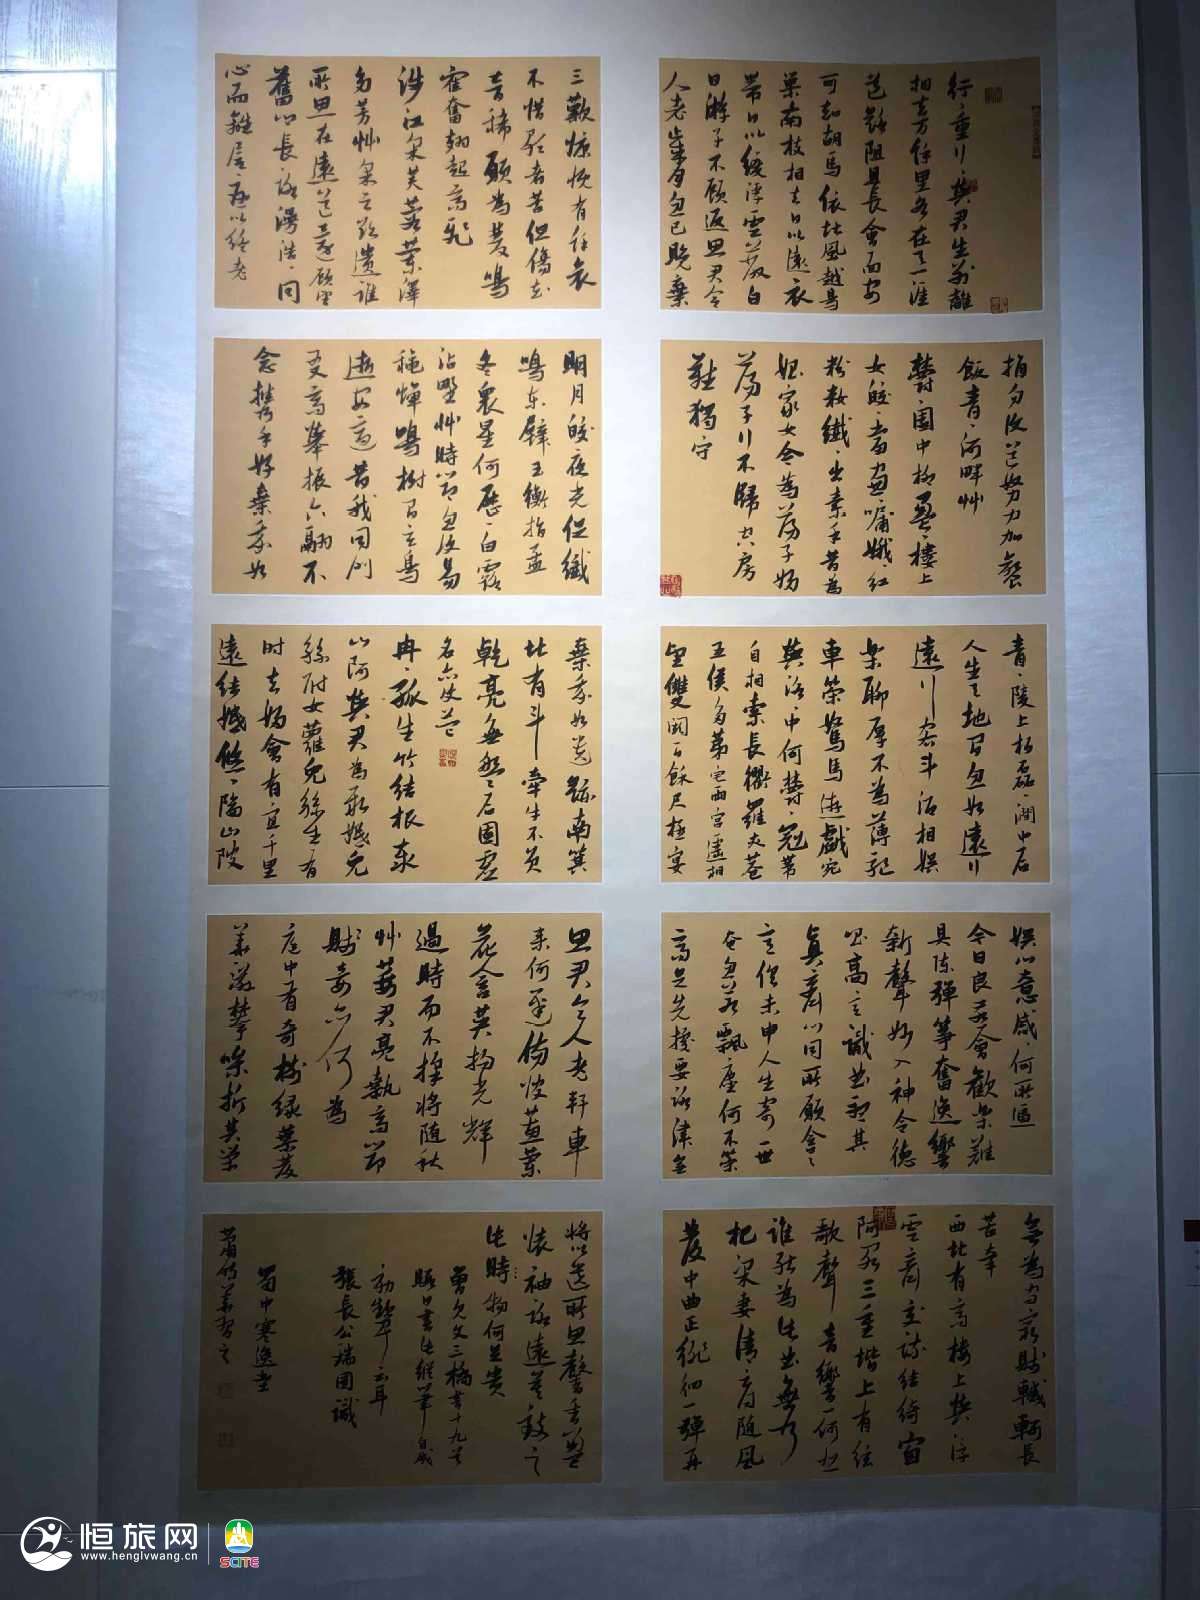 行〻重行〻與君生別離
相去萬餘里各在天一涯
道路阻且長會面安
可知胡馬依北風越鳥
巢南枝相去日以遠衣
帶日以緩浮雲蔽白
日游子不顧返思君令
人老歲月忽已晚棄
捐勿復道努力加餐
飯青〻河畔艸
鬱〻園中柳盈〻樓上
女皎〻當窗牖娥〻紅
粉妝纖〻出素手昔為
娼家女今為蕩子婦
蕩子行不歸空房
難獨守
青〻陵上柏磊〻澗中石
人生天地間忽如遠行
遠行客斗酒相娛
樂聊厚不為薄驅
車策駑馬遊戲宛
與洛〻中何鬱〻冠帶
自相索長衢羅夾巷
王侯多第宅兩宮遙相
望雙闕百餘尺極宴
娛心意戚〻何所逼
今日良宴會歡樂難
具陳彈箏奮逸響
新聲妙入神令德
唱高言識曲聽其
真齊心同所願含〻
意俱未申人生寄一世
奄忽若飄塵何不策
高足先據要路津無
無為守窮賤轗軻長
苦辛
西北有高樓上與浮
雲齊交疏結綺窗
阿閣三重階上有絃
歌聲音響一何悲
誰能為此曲無乃
杞梁妻清音隨風
發中曲正徘徊一彈再
三歎慷慨有餘哀
不惜歌者苦但傷知
音稀願為雙鳴
雀奮翅起高飛
涉江采芙蓉蘭澤
多芳艸采之欲遺誰
所思在遠道還顧望
舊鄉長路漫浩〻同
心而離居憂以終老
明月皎夜光促織
鳴東壁玉衡指孟
冬眾星何歷〻白露
沾野艸時節忽復易
秋蟬鳴樹間玄鳥
逝安適昔我同門
友高舉振六翮不
念攜手好棄我如
棄我如遺跡南箕
北有斗牽牛不負
軛良無盤石固虛
名亦復益
冉〻孤生竹結根泰
山阿與君為新婚兔
絲附女蘿兔絲生有
時夫婦會有宜千里
遠結婚悠〻隔山陂
思君令人老軒車
來何遲傷彼蕙蘭
花含英揚光輝
過時而不採將隨秋
艸萎君亮執高節
賤妾亦何為
庭中有奇樹綠葉發
華滋攀條折其榮
將以遺所思馨香盈
懷袖路遠莫致之
此物何足貴
曾見文三橋書十九首
日書此縱筆自成
張長公瑞圖識
蜀中寒逸堂
恒旅网
www.henglvwang.cn
SCITE